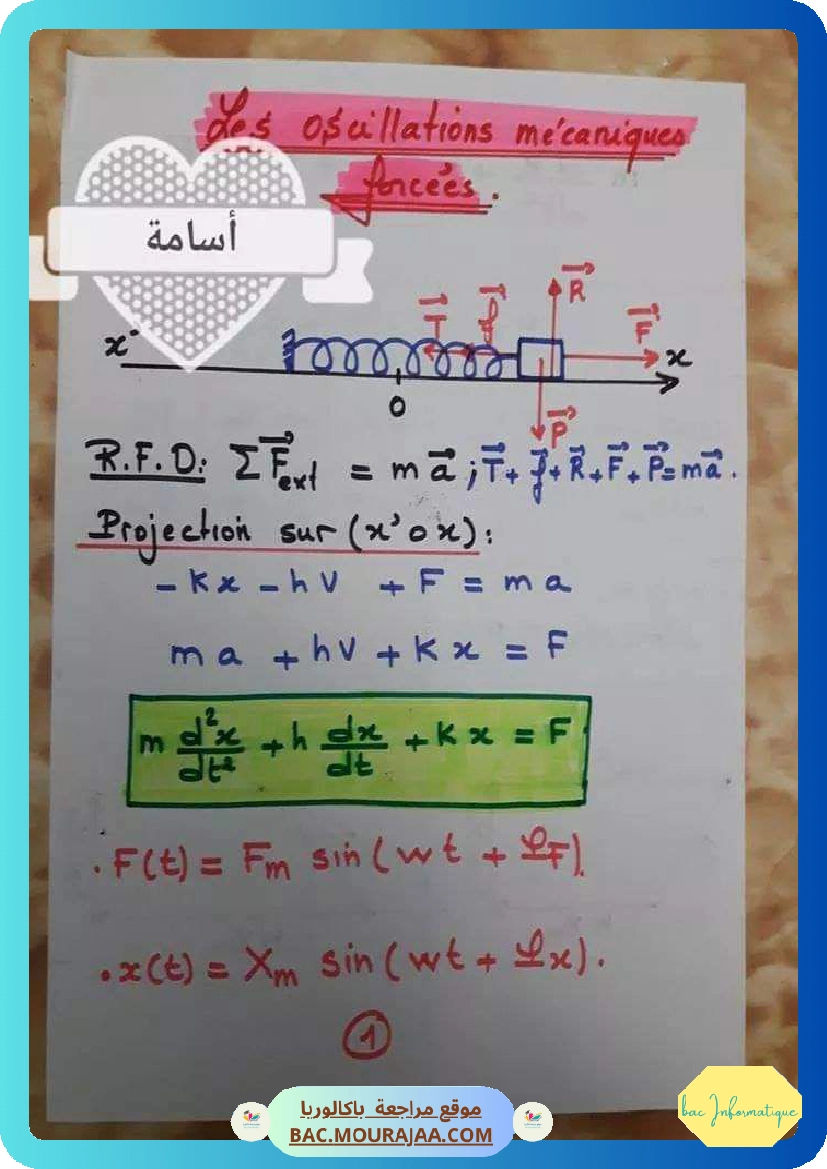 Les oscillations mécaniques
forcées.
أسامة
x' T f R F x
O P
R.F.D: ΣF ext = m a ; T + f + R + F + P = m a .
Projection sur (x' o x) :
- K x - h V + F = m a
m a + h V + K x = F
m d²x/dt² + h dx/dt + K x = F
. F(t) = Fm sin ( wt + φF ).
. x(t) = Xm sin ( wt + φx ) .
1
موقع مراجعة باكالوريا
BAC.MOURAJAA.COM
bac Informatique